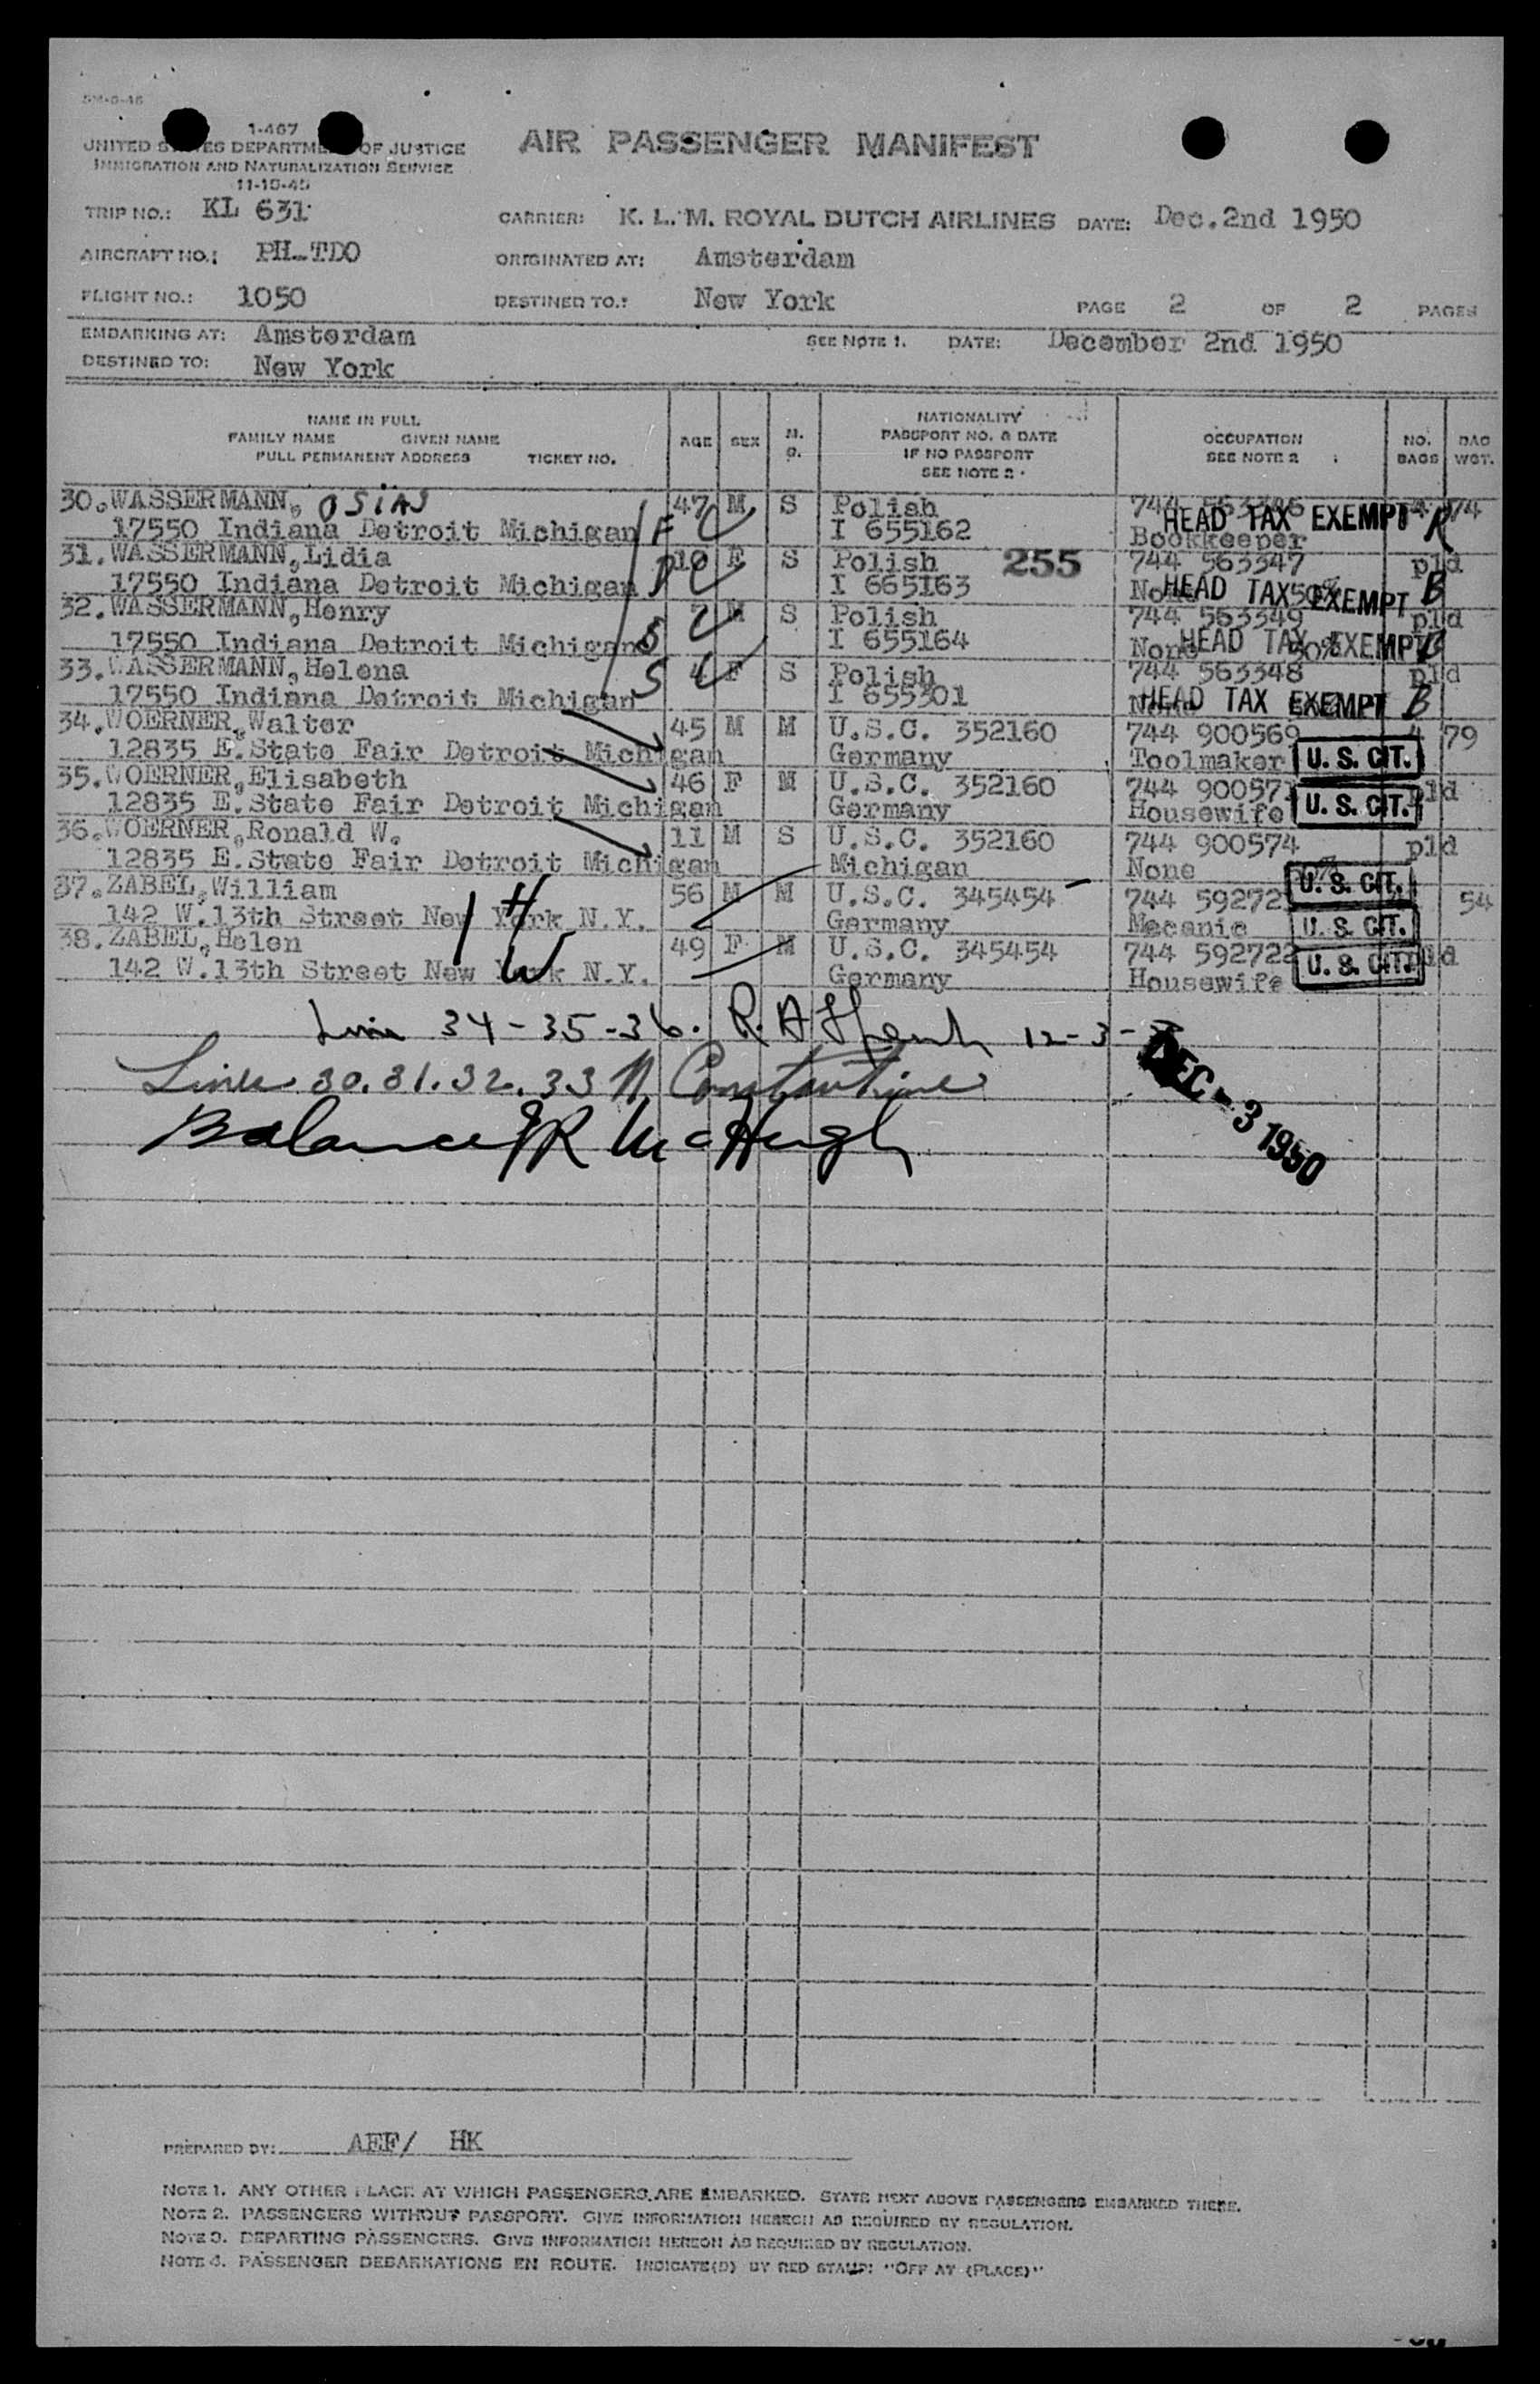 1-467
UNITED STATES DEPARTMENT OF JUSTICE
IMMIGRATION AND NATURALIZATION SERVICE
11-15-45
AIR PASSENGER MANIFEST
TRIP NO.: KL 631 CARRIER: K. L. M. ROYAL DUTCH AIRLINES DATE: Dec.2nd 1950
AIRCRAFT NO.: PH-TDO ORIGINATED AT: Amsterdam
FLIGHT NO.: 1050 DESTINED TO.: New York PAGE 2 OF 2 PAGES
EMBARKING AT: Amsterdam SEE NOTE 1. DATE: December 2nd 1950
DESTINED TO: New York
NAME IN FULL
FAMILY NAME GIVEN NAME
FULL PERMANENT ADDRESS TICKET NO.
AGE SEX M. S.
NATIONALITY
PASSPORT NO. & DATE
IF NO PASSPORT
SEE NOTE 2
OCCUPATION
SEE NOTE 2
NO. BAGS
BAG WGT.
30. WASSERMANN, OSIAS 47 M S Polish 744 74
17550 Indiana Detroit Michigan F I 655162 Bookkeeper HEAD TAX EXEMPT R
31. WASSERMANN, Lidia 10 F S Polish 255 744 563347 pld
17550 Indiana Detroit Michigan D I 665163 HEAD TAX EXEMPT B
32. WASSERMANN, Henry 7 M S Polish 744 563349 pld
17550 Indiana Detroit Michigan S I 655164 None HEAD TAX EXEMPT B
33. WASSERMANN, Helena 4 F S Polish 744 563348 pld
17550 Indiana Detroit Michigan S I 655301 None HEAD TAX EXEMPT B
34. WOERNER, Walter 45 M M U.S.C. 352160 744 900569 4 79
12835 E.State Fair Detroit Michigan Germany Toolmaker U. S. CIT.
35. WOERNER, Elisabeth 46 F M U.S.C. 352160 744 90057 pld
12835 E.State Fair Detroit Michigan Germany Housewife U. S. CIT.
36. WOERNER, Ronald W. 11 M S U.S.C. 352160 744 900574 pld
12835 E.State Fair Detroit Michigan Michigan None U. S. CIT.
37. ZABEL, William 56 M M U.S.C. 345454 744 59272 54
142 W.13th Street New York N.Y. H Germany Mecanic U. S. CIT.
38. ZABEL, Helen 49 F M U.S.C. 345454 744 592722 pld
142 W.13th Street New York N.Y. W Germany Housewife U. S. CIT.
34-35-36. 12-3-
Lines 30.31.32.33 Constantine
DEC - 3 1950
Balance McHugh
PREPARED BY: AEF/ HK
NOTE 1. ANY OTHER PLACE AT WHICH PASSENGERS ARE EMBARKED. STATE NEXT ABOVE PASSENGERS EMBARKED THERE.
NOTE 2. PASSENGERS WITHOUT PASSPORT. GIVE INFORMATION HEREON AS REQUIRED BY REGULATION.
NOTE 3. DEPARTING PASSENGERS. GIVE INFORMATION HEREON AS REQUIRED BY REGULATION.
NOTE 4. PASSENGER DEBARKATIONS EN ROUTE. INDICATE(D) BY RED STAMP: "OFF AT (PLACE)"